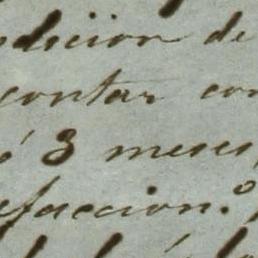 ndicion de
contar con
ó 3 meses,
efaccion.